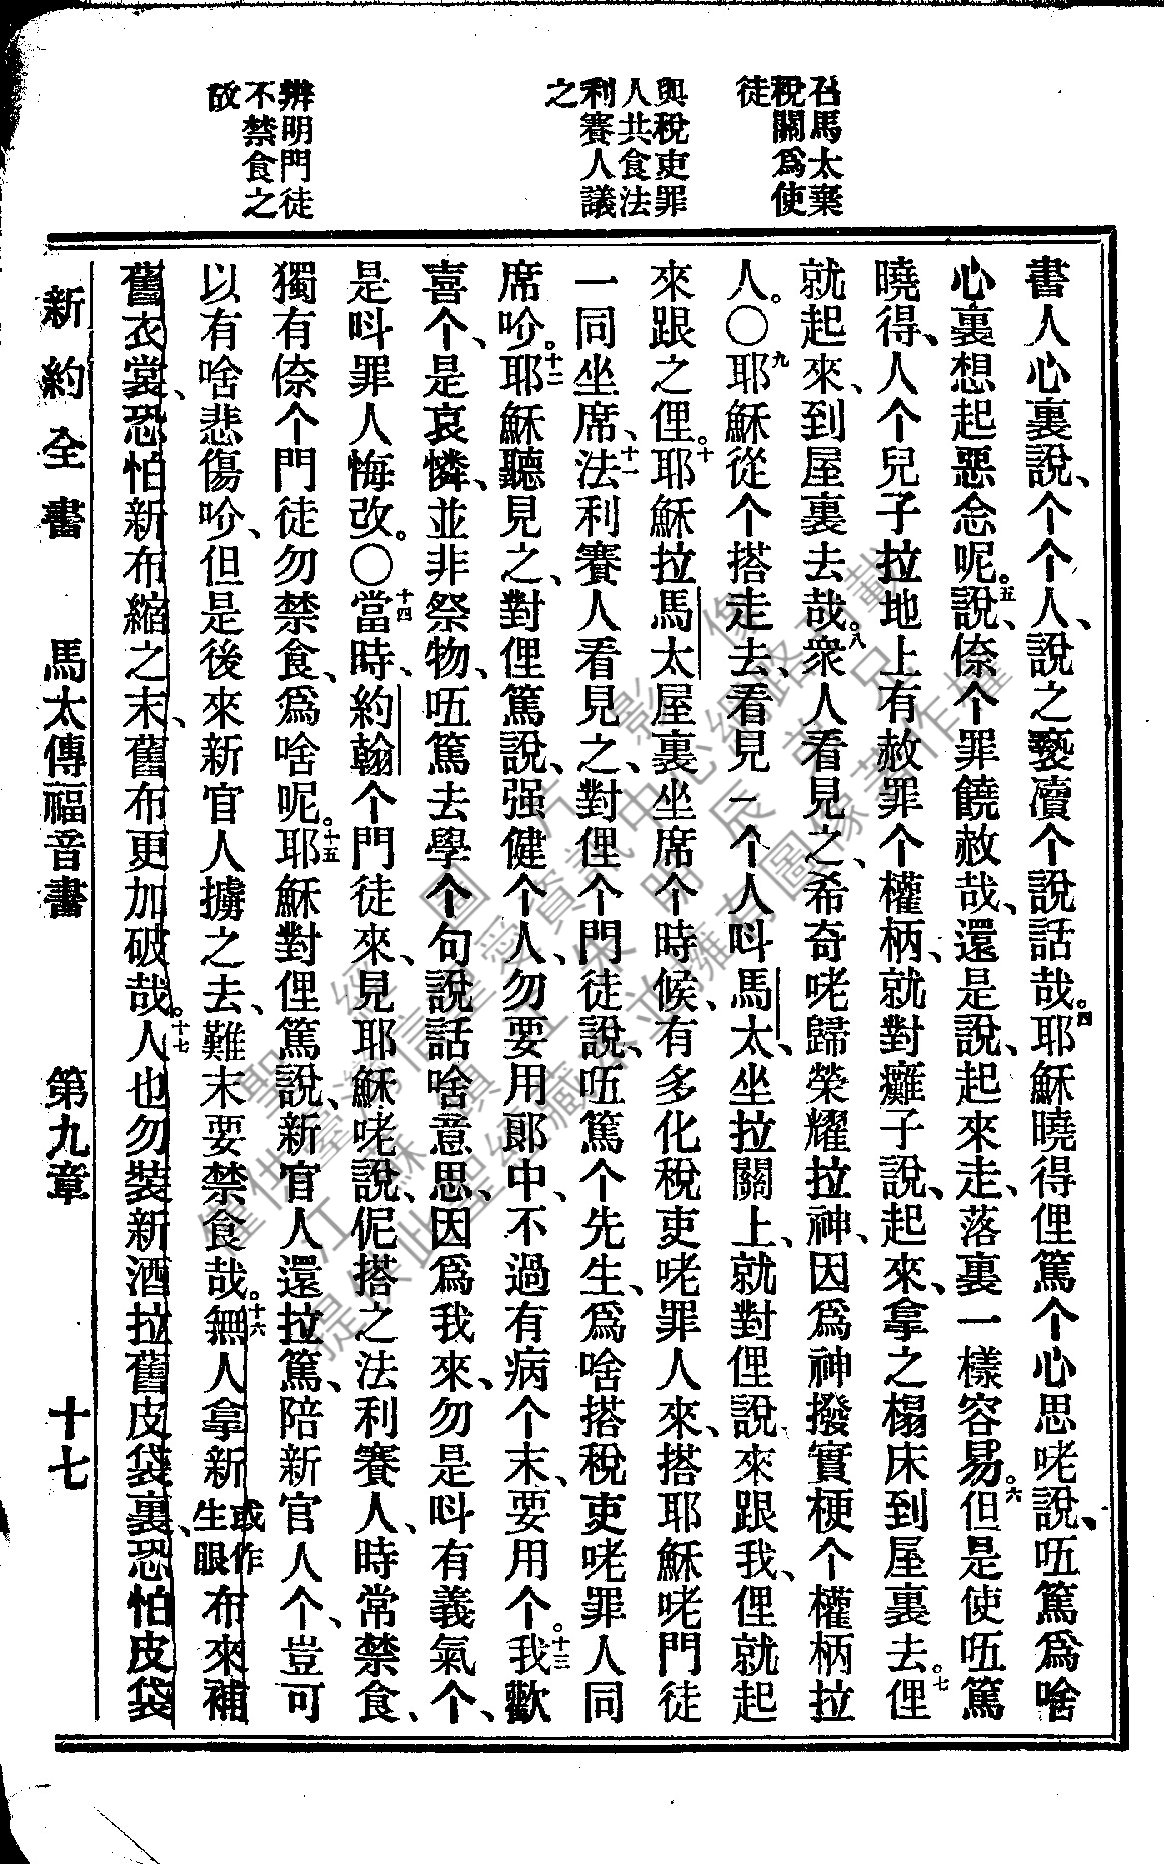 召馬太棄
稅關爲使
徒
與稅吏罪
人共食法
利賽人議
之
辨明門徒
不禁食之
故
書人心裏說、个个人、說之褻瀆个說話哉。四耶穌曉得俚篤个心思咾說、㕶篤爲啥
心裏想起惡念呢。五說、倷个罪饒赦哉、還是說、起來走、落裏一樣容易。六但是使㕶篤
曉得、人个兒子拉地上有赦罪个權柄、就對癱子說、起來、拿之榻床到屋裏去。七俚
就起來、到屋裏去哉。八衆人看見之、希奇咾歸榮耀拉神、因爲神撥實梗个權柄拉
人。〇九耶穌從个搭走去、看見一个人呌馬太、坐拉關上、就對俚說、來跟我、俚就起
來跟之俚。十耶穌拉馬太屋裏坐席个時候、有多化稅吏咾罪人來、搭耶穌咾門徒
一同坐席、十一法利賽人看見之、對俚个門徒說、㕶篤个先生、爲啥搭稅吏咾罪人同
席吤。十二耶穌聽見之、對俚篤說、强健个人、勿要用郞中、不過有病个末、要用个。十三我歡
喜个、是哀憐、並非祭物、㕶篤去學个句說話啥意思、因爲我來、勿是呌有義氣个、
是呌罪人悔改。〇十四當時、約翰个門徒來、見耶穌咾說、伲搭之法利賽人、時常禁食、
獨有倷个門徒勿禁食、爲啥呢。十五耶穌對俚篤說、新官人還拉篤、陪新官人个、豈可
以有啥悲傷吤、但是後來新官人擄之去、難末要禁食哉。十六無人拿新或作生眼布來補
舊衣裳、恐怕新布縮之末、舊布更加破哉。十七人也勿裝新酒拉舊皮袋裏、恐怕皮袋
新約全書　馬太傳福音書　第九章　十七
聖經圖片影像
僅供臺灣信望愛資訊中心網路下載
江蘇鎮江朱明辰弟兄
提供此聖經藏本並擁有圖像著作權